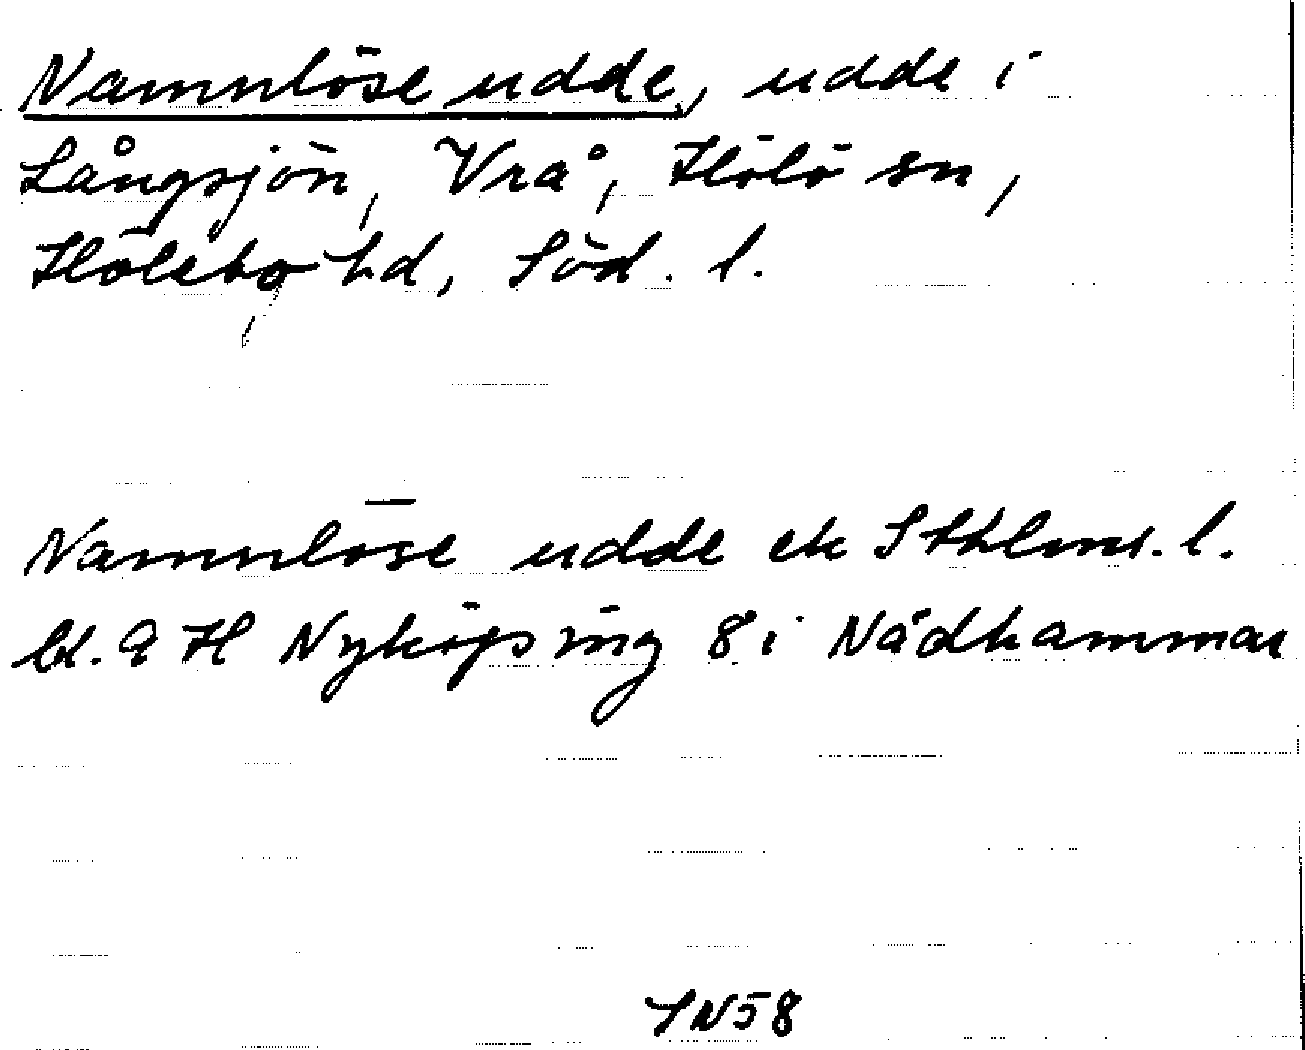 Namnlöse udde, udde i
Långsjön, Vrå, Hölö sn,
Hölebo hd, Söd. l.
Namnlöse udde ek Sthlms. l.
bl. 9 H Nyköping 8 i Nådhammar